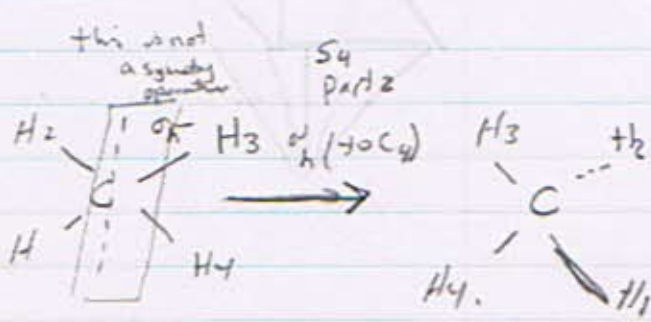 this is not
a symmetry
operation
S4
part 2
H2
σh
H3
σh (to C4)
H3
H2
C
C
H
H4
H4.
H1